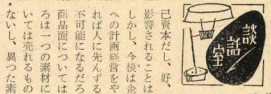 談話室
己資本だし、好、
影響されることは
しかし、今後は企
への計画経営をや
れば人に先んずる
不可能になるだろ
商品面については
ろは一つの素材に
いては売れるもの
ないし、異つた素